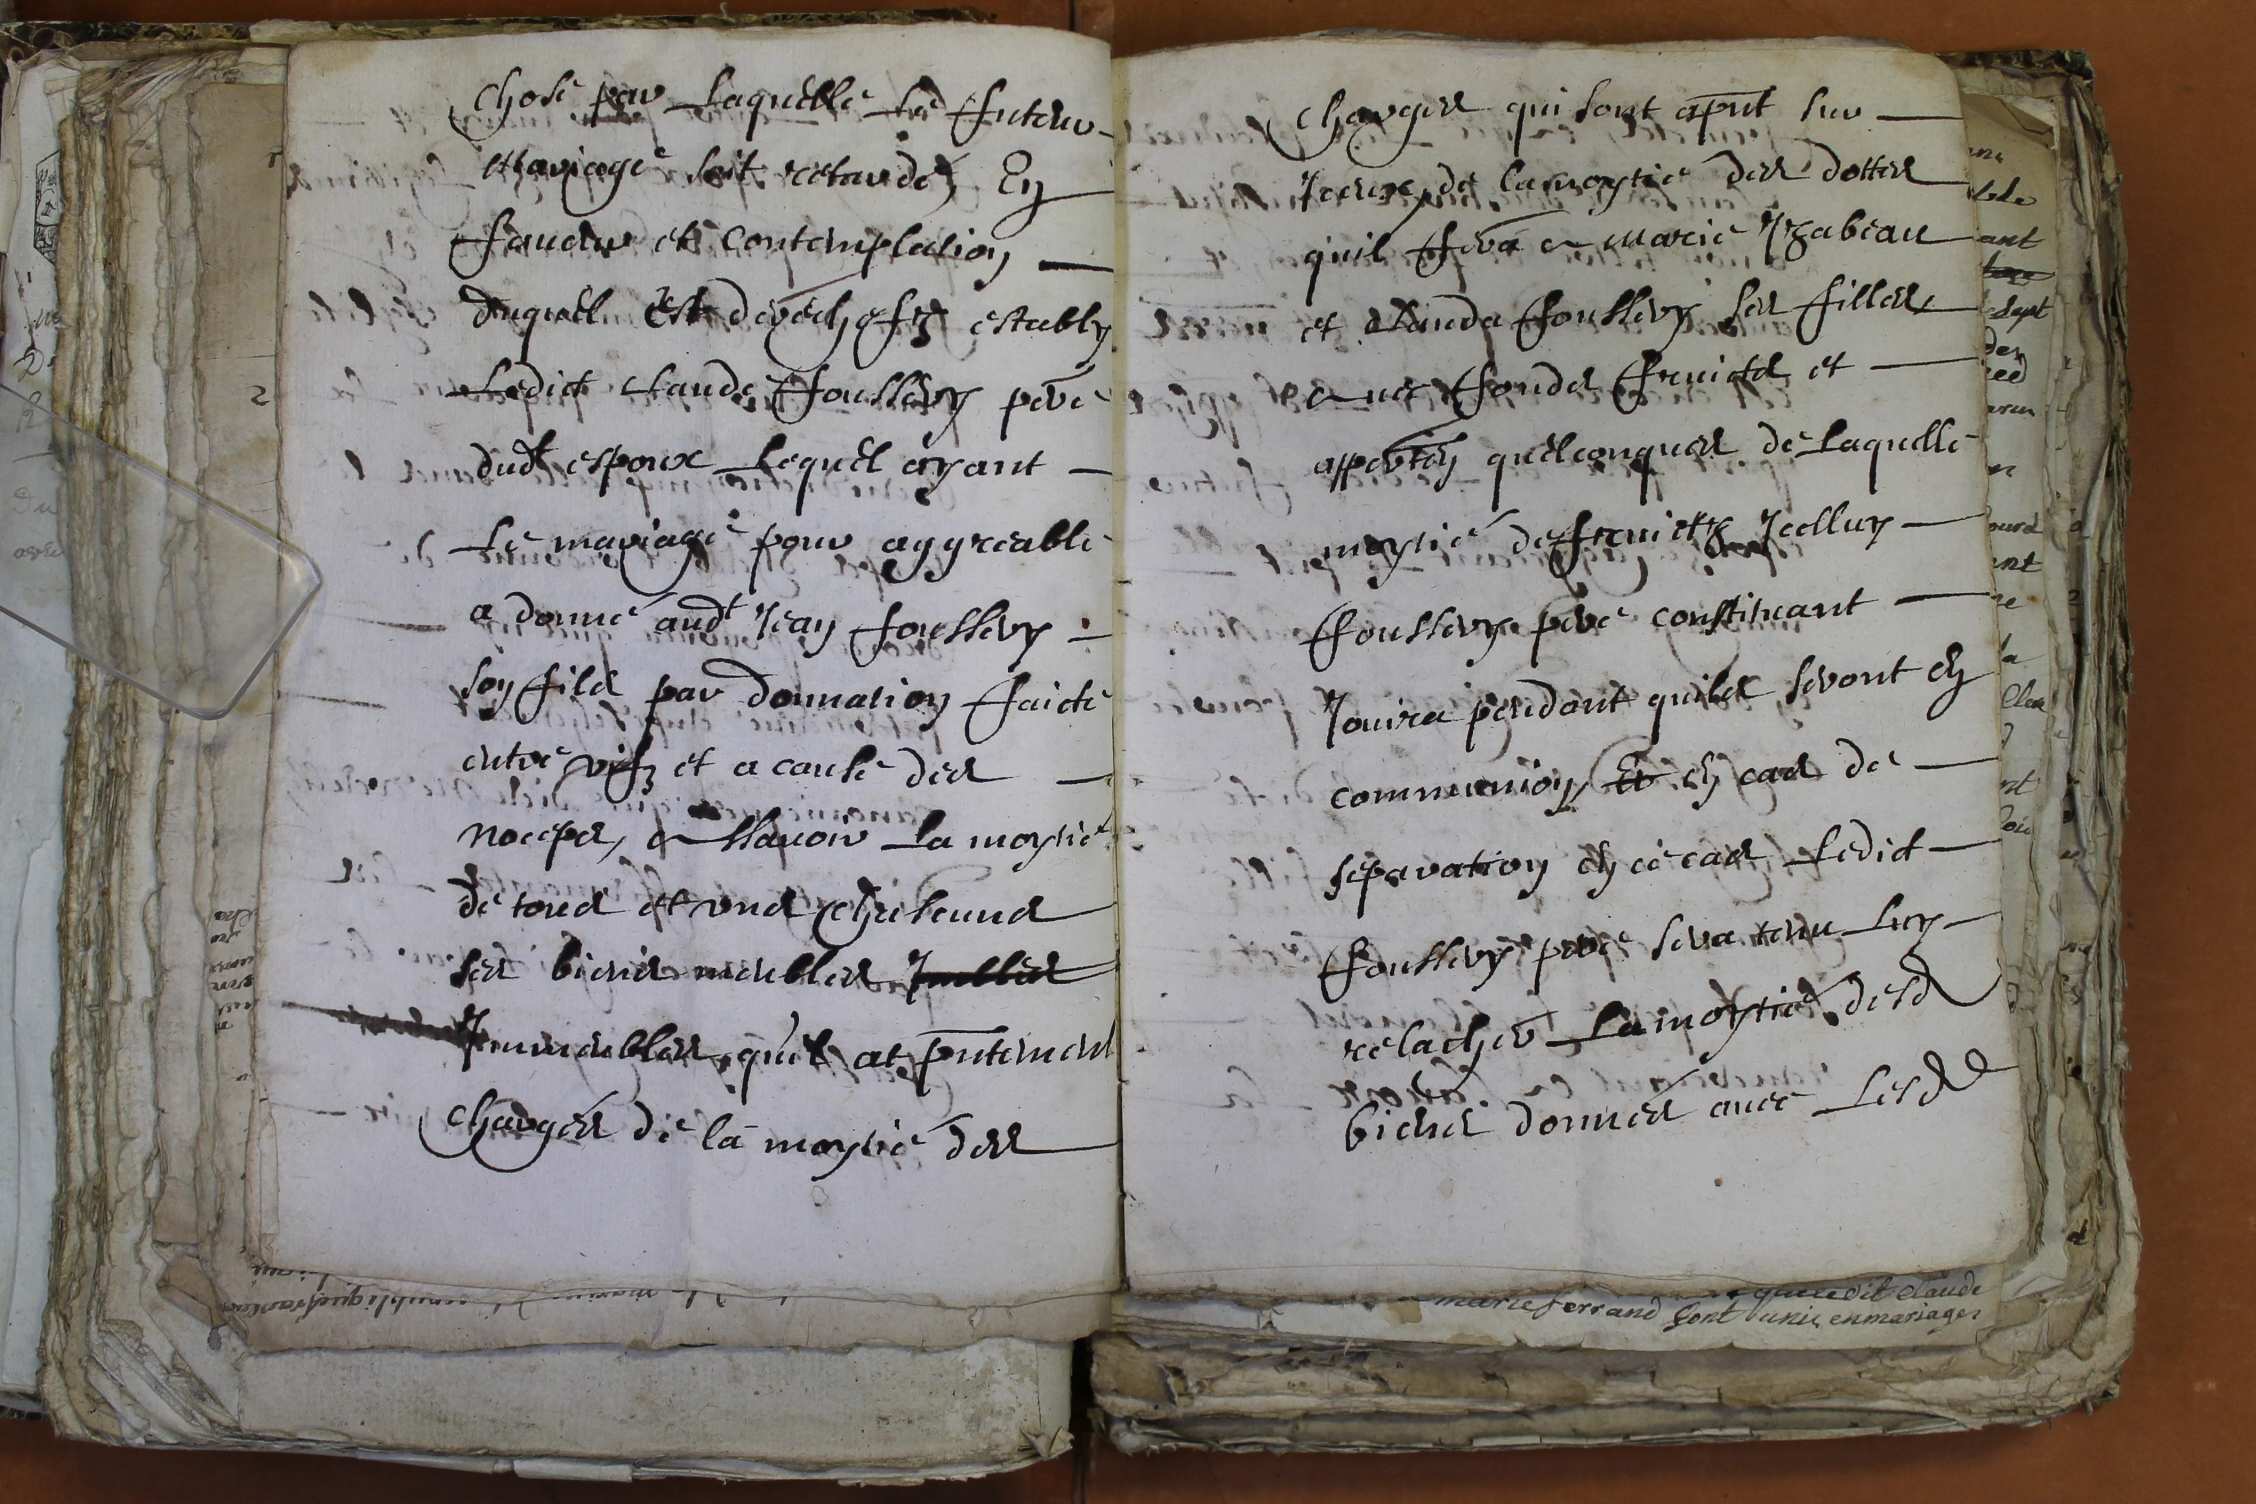 chose par laquelle le futeur
mariage soit retardé, En
faueur et contemplation
duquel est derechefz establi
ledict claude ffoullery pere
dudt espoux lequel ayant
le mariage pour aggreable
a donné audt Jean ffoullery
son filz par donnation faicte
entre vifz et a cause des
nocpes, a scauoir la moytié
de tous et vns chascuns
ses biens meubles
Immeubles, qu'il at pntement
chargés de la moytié des
charges qui sont apnt sur
Iceux, de la moytié des dottes
quil fera a marie Yzabeau
et clauda ffoullery ses filles
auec fondz fruictz et
apperten quelconques de laquelle
moytié de fruictz Icelluy
ffoullery pere constituant
Jouira pendant quilz seront en
communion, Et en cas de
separation en ce cas ledict
ffoullery pere sera tenu luy
relacher la moytié desd
biens donnés auec lesd
marie ferrand sont unis en mariage
que ledit Claude